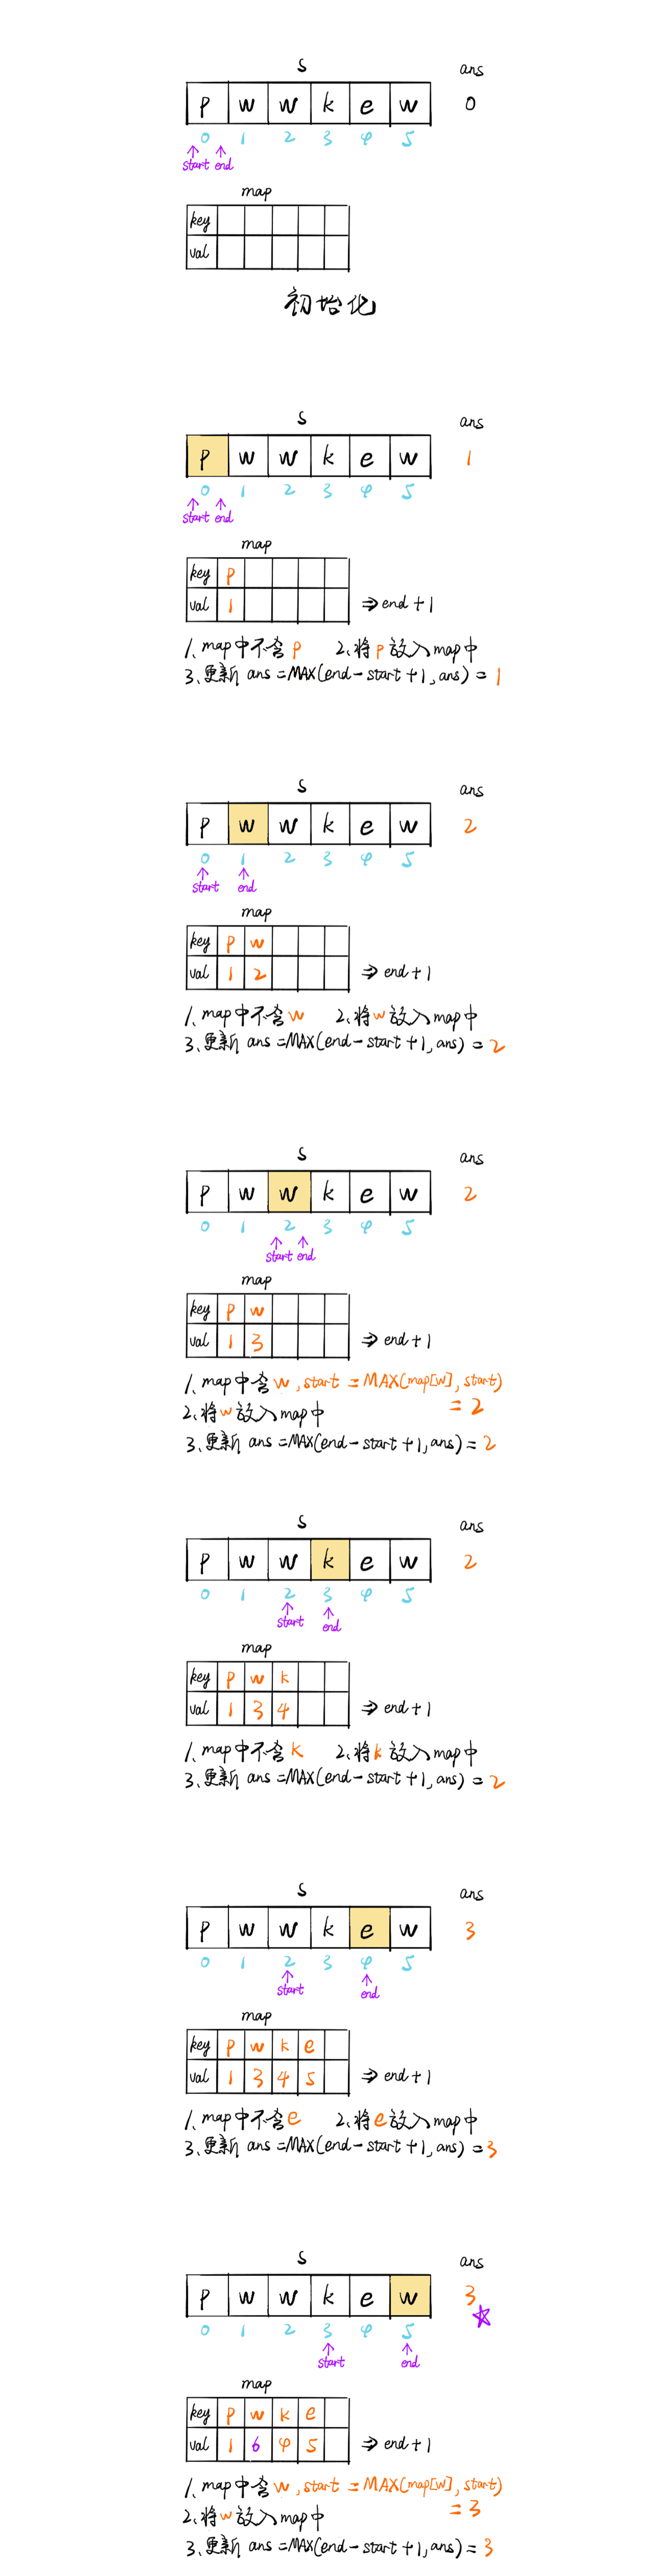 s ans
p w w k e w 0
0 1 2 3 4 5
start end
map
key
val
初始化
s ans
p w w k e w 1
0 1 2 3 4 5
start end
map
key p
val 1 ⇒ end + 1
1、map中不含p 2、将p放入map中
3、更新 ans = MAX(end - start + 1, ans) = 1
s ans
p w w k e w 2
0 1 2 3 4 5
start end
map
key p w
val 1 2 ⇒ end + 1
1、map中不含w 2、将w放入map中
3、更新 ans = MAX(end - start + 1, ans) = 2
s ans
p w w k e w 2
0 1 2 3 4 5
start end
map
key p w
val 1 3 ⇒ end + 1
1、map中含w, start = MAX(map[w], start)
= 2
2、将w放入map中
3、更新 ans = MAX(end - start + 1, ans) = 2
s ans
p w w k e w 2
0 1 2 3 4 5
start end
map
key p w k
val 1 3 4 ⇒ end + 1
1、map中不含k 2、将k放入map中
3、更新 ans = MAX(end - start + 1, ans) = 2
s ans
p w w k e w 3
0 1 2 3 4 5
start end
map
key p w k e
val 1 3 4 5 ⇒ end + 1
1、map中不含e 2、将e放入map中
3、更新 ans = MAX(end - start + 1, ans) = 3
s ans
p w w k e w 3
0 1 2 3 4 5
start end
map
key p w k e
val 1 6 4 5 ⇒ end + 1
1、map中含w, start = MAX(map[w], start)
= 3
2、将w放入map中
3、更新 ans = MAX(end - start + 1, ans) = 3